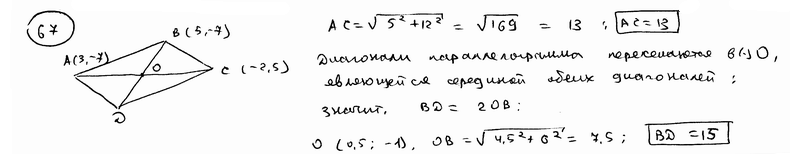 67
B (5, -7)
A (3, -7)
O
C (-2, 5)
D
AC = √5² + 12² = √169 = 13 ; AC = 13
Диагонали параллелограмма пересекаются в (·) O,
являющейся серединой обеих диагоналей ;
значит, BD = 2OB :
O (0,5 ; -1), OB = √4,5² + 6² = 7,5 ; BD = 15